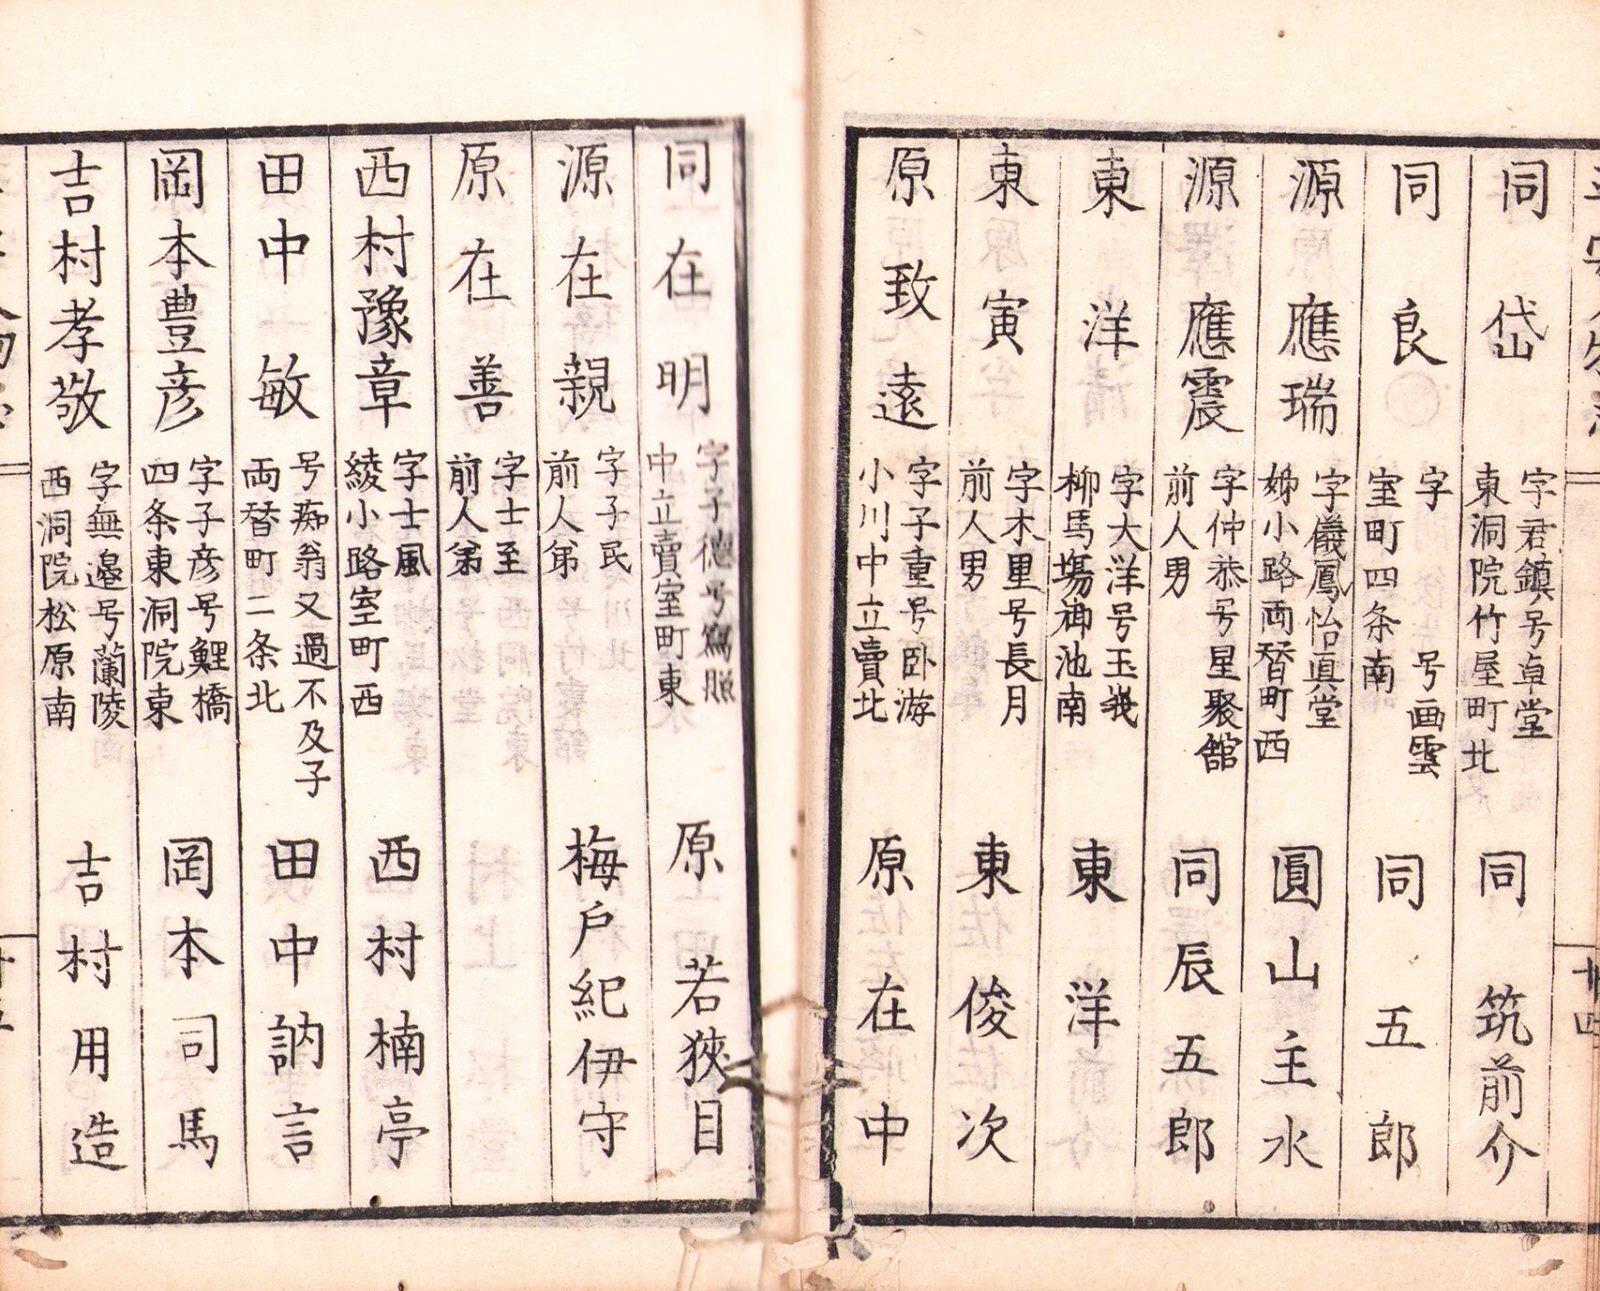 同岱
字君鎮号卓堂
東洞院竹屋町北
同筑前介
同良
字　号画雲
室町四条南
同五郎
源應瑞
字儀鳳号怡真堂
姊小路両替町西
圓山主水
源應震
字仲恭号星聚館
前人男
同辰五郎
東洋
字大洋号玉峩
柳馬場御池南
東洋
東寅
字木里号長月
前人男
東俊次
原致遠
字子重号卧游
小川中立賣北
原在中
同在明
字子德号寫照
中立賣室町東
原若狹目
源在親
字子民
前人弟
梅戶紀伊守
原在善
字士至
前人弟
西村豫章
字士風
綾小路室町西
西村楠亭
田中敏
号痴翁又過不及子
両替町二条北
田中訥言
岡本豊彦
字子彦号鯉橋
四条東洞院東
岡本司馬
吉村孝敬
字無邉号蘭陵
西洞院松原南
吉村用造